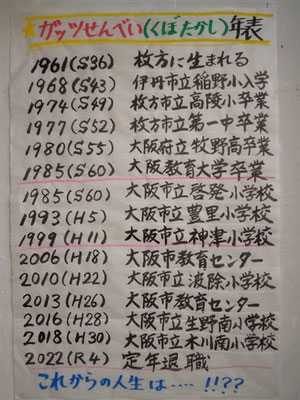 ★ガッツせんべい(くぼたかし)年表
1961(S36) 枚方に生まれる
1968(S43) 伊丹市立稲野小入学
1974(S49) 枚方市立高陵小卒業
1977(S52) 枚方市立第一中卒業
1980(S55) 大阪府立牧野高卒業
1985(S60) 大阪教育大学卒業
1985(S60) 大阪市立啓発小学校
1993(H5) 大阪市立豊里小学校
1999(H11) 大阪市立神津小学校
2006(H18) 大阪市教育センター
2010(H22) 大阪市立波除小学校
2013(H26) 大阪市教育センター
2016(H28) 大阪市立生野南小学校
2018(H30) 大阪市立木川南小学校
2022(R4) 定年退職
これからの人生は‥‥!!??